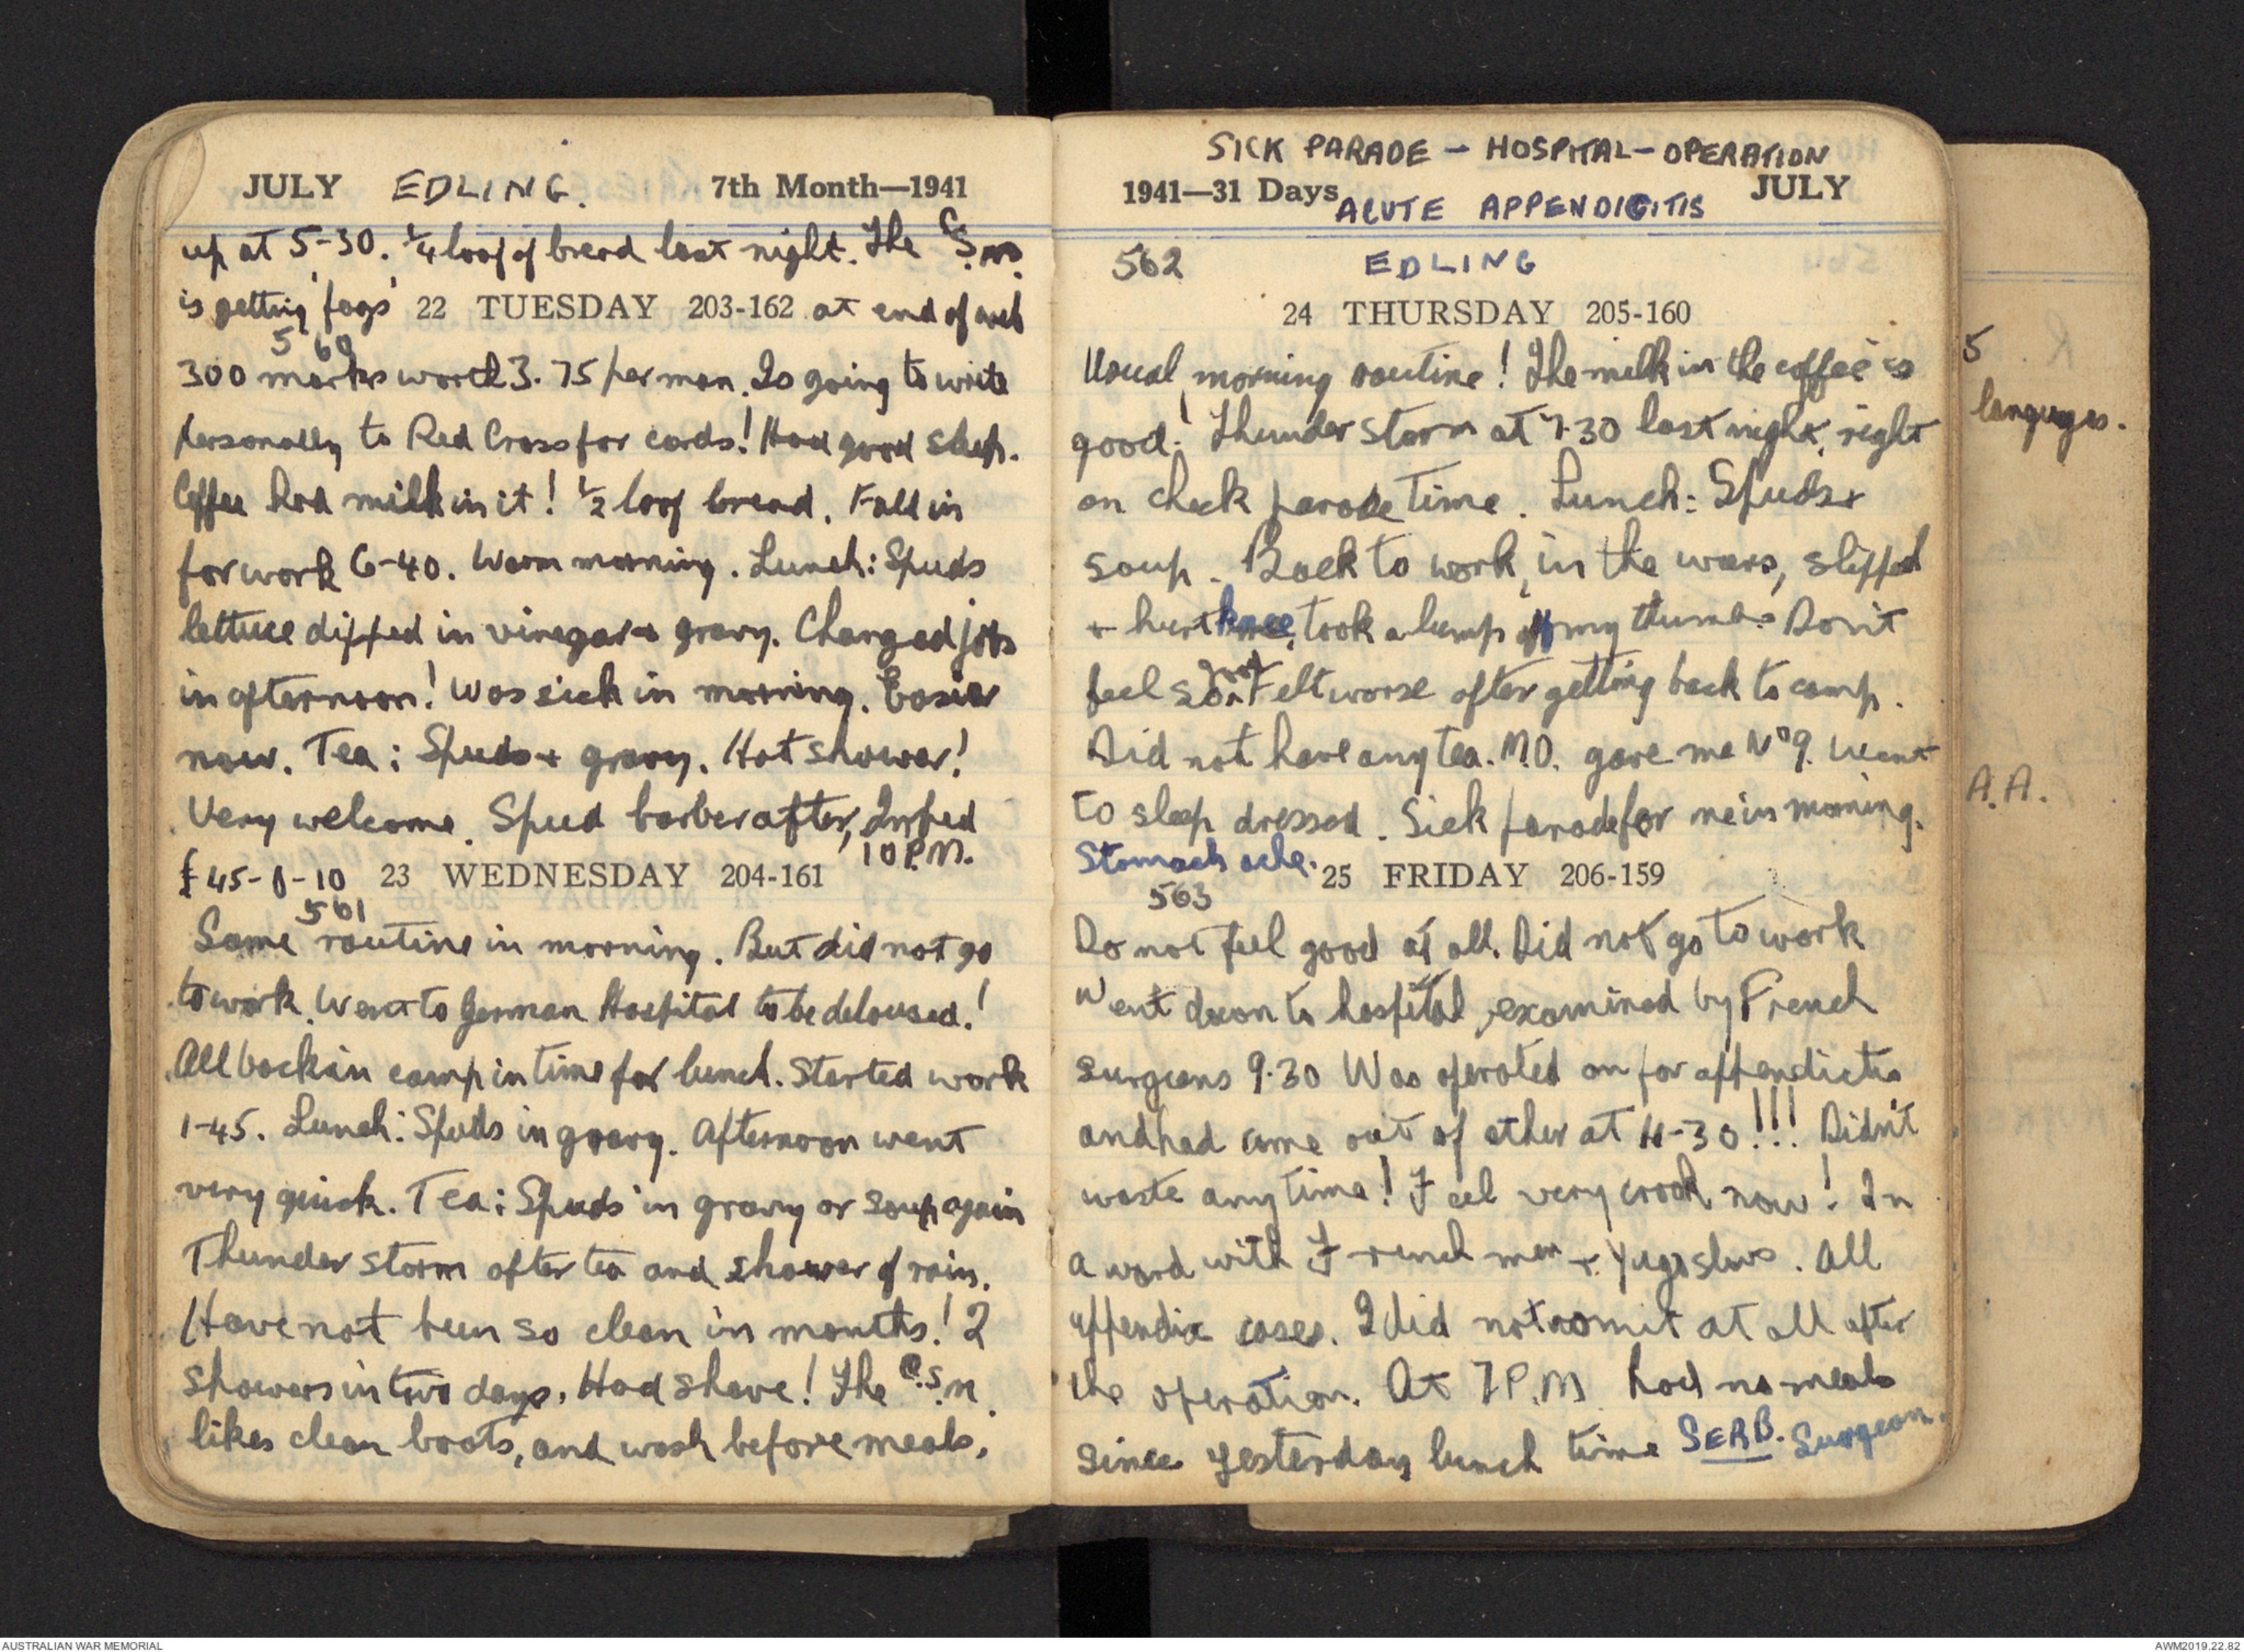 JULY EDLING. 7th Month—1941
up at 5-30. ¼ loaf of bread last night. The C.S.M.
is getting 'fags' 22 TUESDAY 203-162 at end of week
560
300 marks worth 3.75 per man. Is going to write
personally to Red Cross for cards! Had good sleep.
Coffee had milk in it! ½ loaf bread. Fall in
for work 6-40. Warm morning. Lunch: Spuds
lettuce dipped in vinegar + gravy. Changed jobs
in afternoon! Was sick in morning. Easier
now. Tea: Spuds + gravy. Hot shower!
Very welcome. Spud barber after,
10 P.M.
£45-0-10 23 WEDNESDAY 204-161
561
Same routine in morning. But did not go
to work. Went to German Hospital to be deloused!
All back in camp in time for lunch. Started work
1-45. Lunch: Spuds in gravy. Afternoon went
very quick. Tea: Spuds in gravy or soup again
Thunder storm after tea and shower of rain.
Have not been so clean in months! 2
showers in two days. Had shave! The C.S.M.
likes clean boots, and wash before meals.
SICK PARADE - HOSPITAL - OPERATION
1941—31 Days JULY
ACUTE APPENDICITIS
562 EDLING
24 THURSDAY 205-160
Usual morning routine! The milk in the coffee is
good! Thunder storm at 7.30 last night, right
on check parade time. Lunch: Spuds +
soup. Back to work, in the wars, slipped
+ hurt knee, took a lump off my thumb. Don't
feel so hot. Felt worse after getting back to camp.
Did not have any tea. M.O. gave me No 9. Went
to sleep dressed. Sick parade for me in morning.
Stomach ache. 25 FRIDAY 206-159
563
Do not feel good at all. Did not go to work
Went down to hospital, examined by French
surgeons 9.30 Was operated on for appendicitis
and had come out of ether at 11-30!!! Didn't
waste any time! Feel very crook now! In
a ward with French men + Yugoslavs. All
appendix cases. I did not vomit at all after
the operation. At 7 P.M. had no meals
since yesterday lunch time SERB. Surgeon.
5
languages.
A.A.
AUSTRALIAN WAR MEMORIAL
AWM2019.22.82